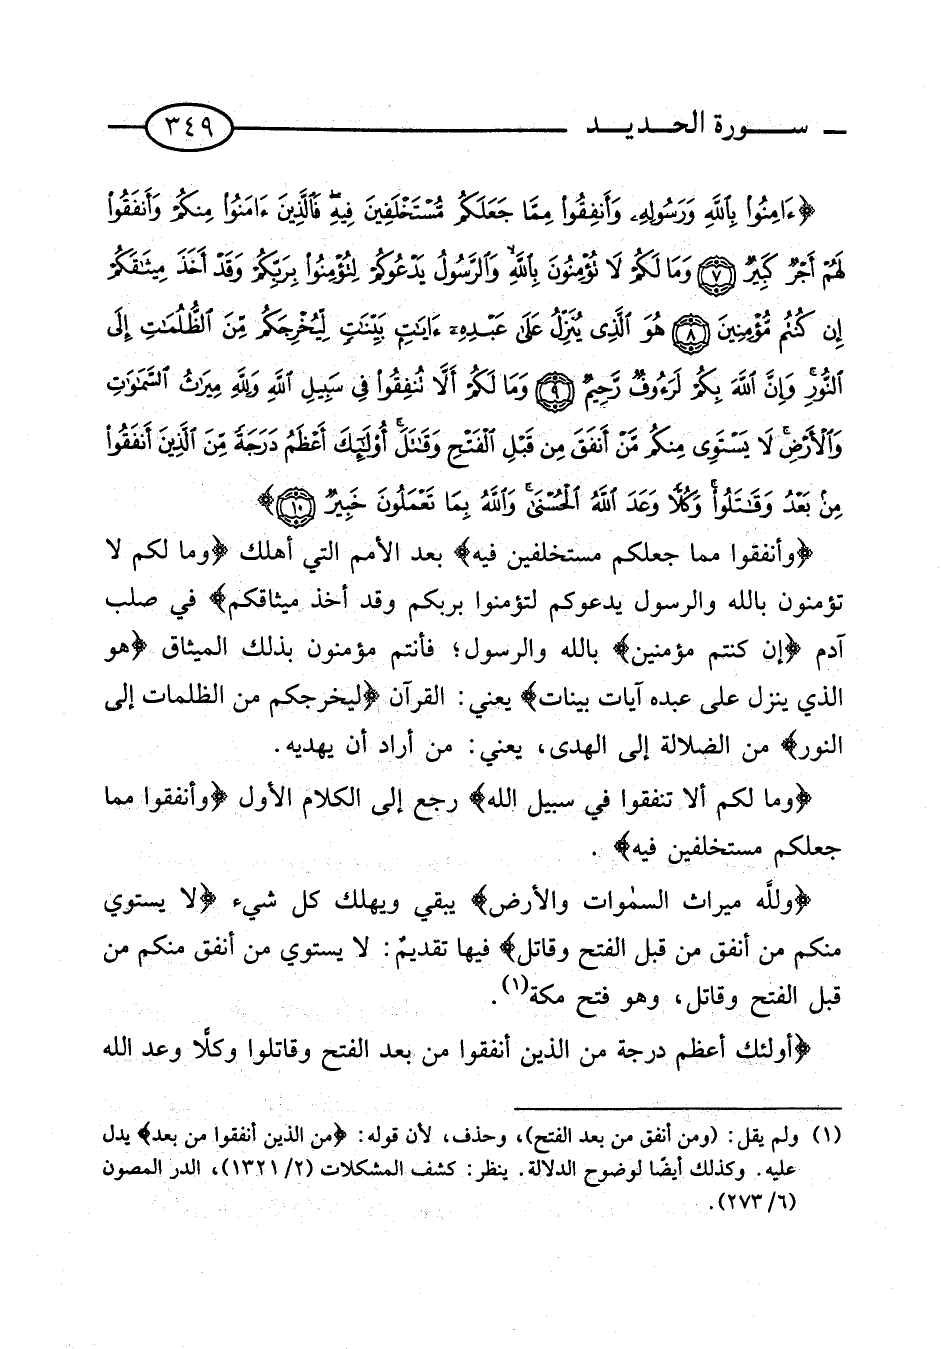 ـ ســورة الحــديــد ٣٤٩
﴿ءَامِنُوا۟ بِٱللَّهِ وَرَسُولِهِۦ وَأَنفِقُوا۟ مِمَّا جَعَلَكُم مُّسْتَخْلَفِينَ فِيهِ ۖ فَٱلَّذِينَ ءَامَنُوا۟ مِنكُمْ وَأَنفَقُوا۟
لَهُمْ أَجْرٌ كَبِيرٌ ٧ وَمَا لَكُمْ لَا تُؤْمِنُونَ بِٱللَّهِ ۙ وَٱلرَّسُولُ يَدْعُوكُمْ لِتُؤْمِنُوا۟ بِرَبِّكُمْ وَقَدْ أَخَذَ مِيثَٰقَكُمْ
إِن كُنتُم مُّؤْمِنِينَ ٨ هُوَ ٱلَّذِى يُنَزِّلُ عَلَىٰ عَبْدِهِۦٓ ءَايَٰتٍۭ بَيِّنَٰتٍ لِّيُخْرِجَكُم مِّنَ ٱلظُّلُمَٰتِ إِلَى
ٱلنُّورِ ۚ وَإِنَّ ٱللَّهَ بِكُمْ لَرَءُوفٌ رَّحِيمٌ ٩ وَمَا لَكُمْ أَلَّا تُنفِقُوا۟ فِى سَبِيلِ ٱللَّهِ وَلِلَّهِ مِيرَٰثُ ٱلسَّمَٰوَٰتِ
وَٱلْأَرْضِ ۚ لَا يَسْتَوِى مِنكُم مَّنْ أَنفَقَ مِن قَبْلِ ٱلْفَتْحِ وَقَٰتَلَ ۚ أُو۟لَٰٓئِكَ أَعْظَمُ دَرَجَةً مِّنَ ٱلَّذِينَ أَنفَقُوا۟
مِنۢ بَعْدُ وَقَٰتَلُوا۟ ۚ وَكُلًّا وَعَدَ ٱللَّهُ ٱلْحُسْنَىٰ ۚ وَٱللَّهُ بِمَا تَعْمَلُونَ خَبِيرٌ ١٠﴾
﴿وأنفقوا مما جعلكم مستخلفين فيه﴾ بعد الأمم التي أهلك ﴿وما لكم لا
تؤمنون بالله والرسول يدعوكم لتؤمنوا بربكم وقد أخذ ميثاقكم﴾ في صلب
آدم ﴿إن كنتم مؤمنين﴾ بالله والرسول؛ فأنتم مؤمنون بذلك الميثاق ﴿هو
الذي ينزل على عبده آيات بينات﴾ يعني: القرآن ﴿ليخرجكم من الظلمات إلى
النور﴾ من الضلالة إلى الهدى، يعني: من أراد أن يهديه.
﴿وما لكم ألا تنفقوا في سبيل الله﴾ رجع إلى الكلام الأول ﴿وأنفقوا مما
جعلكم مستخلفين فيه﴾ .
﴿ولله ميراث السمٰوات والأرض﴾ يبقي ويهلك كل شيء ﴿لا يستوي
منكم من أنفق من قبل الفتح وقاتل﴾ فيها تقديمٌ: لا يستوي من أنفق منكم من
قبل الفتح وقاتل، وهو فتح مكة(١).
﴿أولئك أعظم درجة من الذين أنفقوا من بعد الفتح وقاتلوا وكلًّا وعد الله
(١) ولم يقل: (ومن أنفق من بعد الفتح)، وحذف، لأن قوله: ﴿من الذين أنفقوا من بعد﴾ يدل
عليه. وكذلك أيضًا لوضوح الدلالة. ينظر: كشف المشكلات (٢/ ١٣٢١)، الدر المصون
(٦/ ٢٧٣).